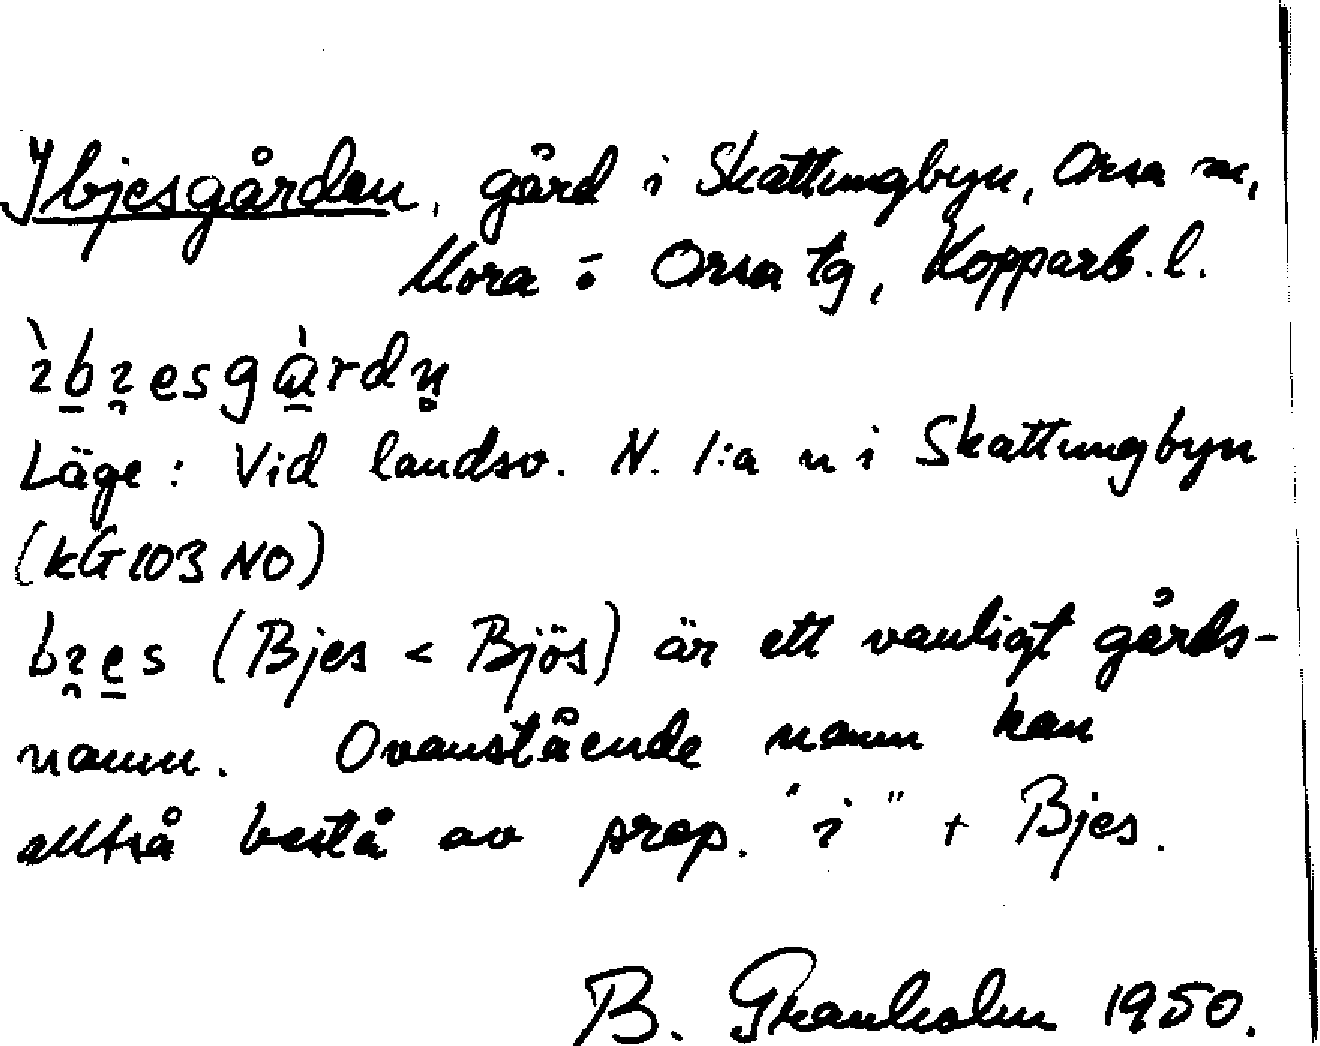 Ybjesgården, gård i Skattungbyn, Orsa sn,
Mora o Orsa tg, Kopparb. l.
Läge: Vid landsv. N. 1:a n i Skattungbyn
(kG 103 NO)
(Bjes < Bjös) är ett vanligt gårds-
namn. Ovanstående namn kan
alltså bestå av prep. "i" + Bjes.
B. Granholm 1950.